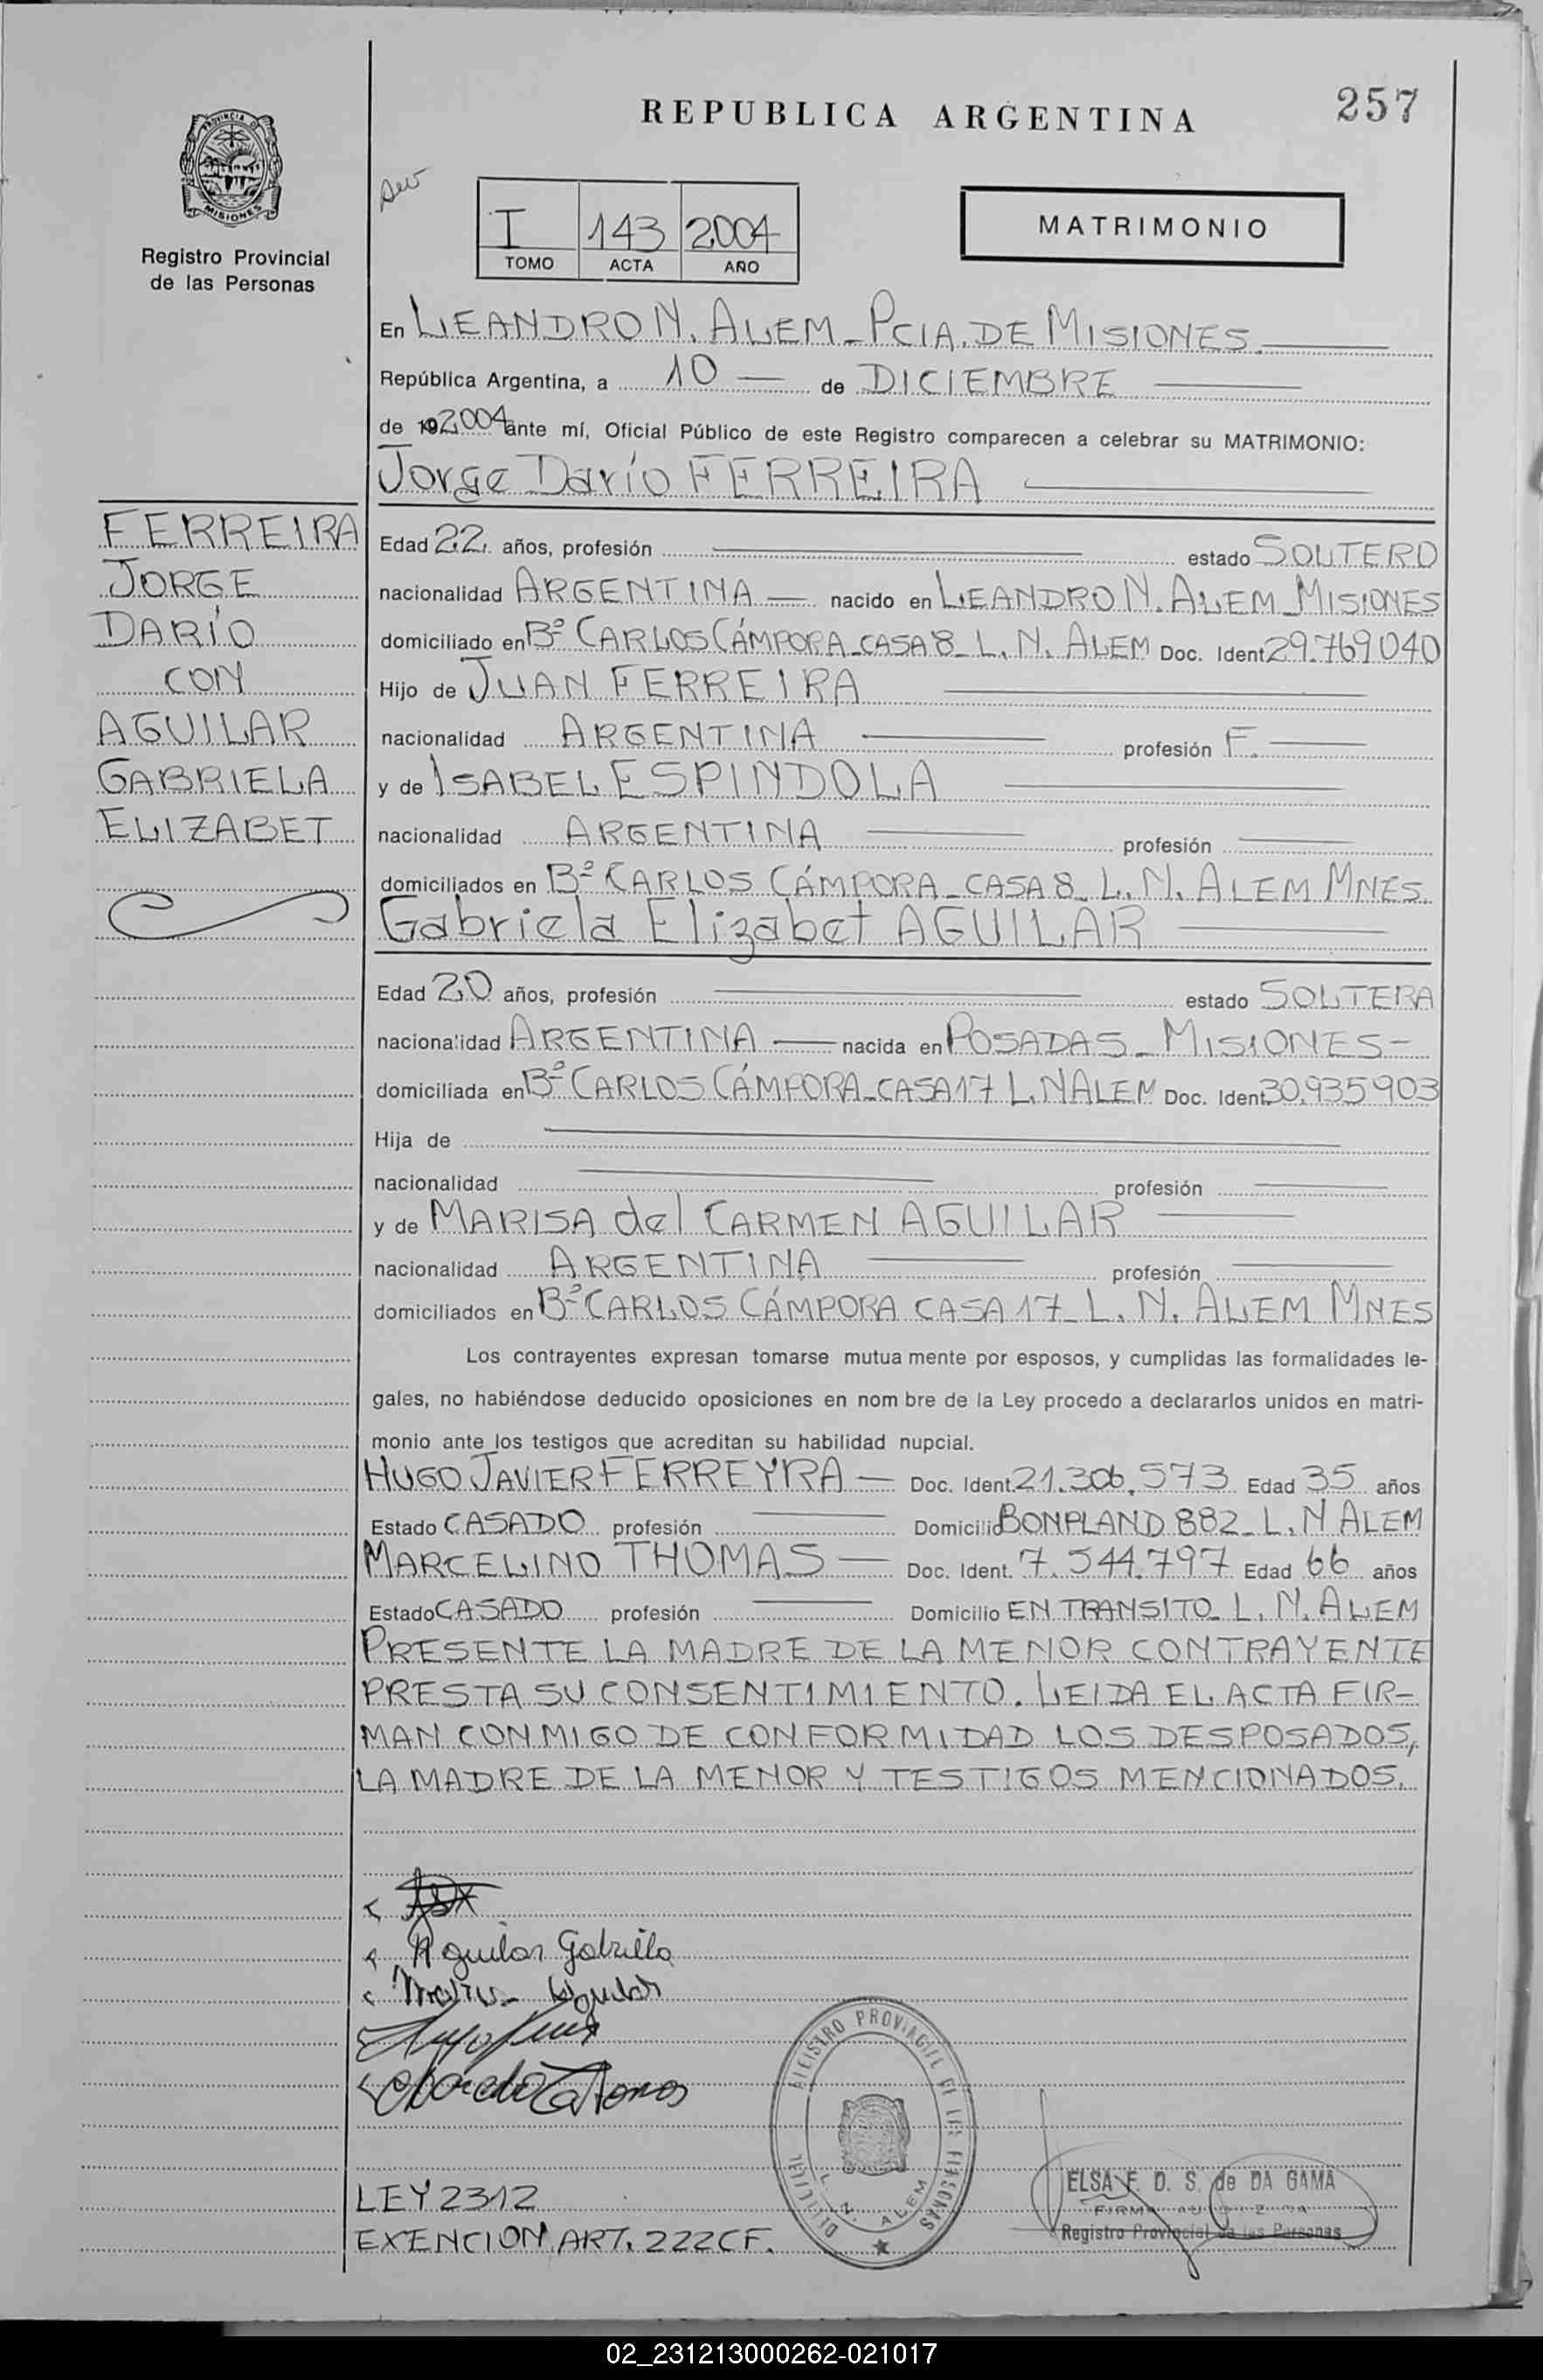 257
REPUBLICA ARGENTINA
PROVINCIA DE
MISIONES
Registro Provincial
de las Personas
I 143 2004
TOMO ACTA AÑO
MATRIMONIO
En LEANDRO N. ALEM - PCIA. DE MISIONES.
República Argentina, a 10 de DICIEMBRE
de 19 2004 ante mí, Oficial Público de este Registro comparecen a celebrar su MATRIMONIO:
Jorge Darío FERREIRA
FERREIRA
JORGE
DARÍO
CON
AGUILAR
GABRIELA
ELIZABET
Edad 22 años, profesión estado SOLTERO
nacionalidad ARGENTINA nacido en LEANDRO N. ALEM MISIONES
domiciliado en Bº CARLOS CÁMPORA - CASA 8 - L. N. ALEM Doc. Ident 29.769040
Hijo de JUAN FERREIRA
nacionalidad ARGENTINA profesión F.
y de ISABEL ESPINDOLA
nacionalidad ARGENTINA profesión
domiciliados en Bº CARLOS CÁMPORA - CASA 8 - L. N. ALEM MNES.
Gabriela Elizabet AGUILAR
Edad 20 años, profesión estado SOLTERA
nacionalidad ARGENTINA nacida en POSADAS - MISIONES -
domiciliada en Bº CARLOS CÁMPORA - CASA 17 L. N ALEM Doc. Ident. 30.935903
Hija de
nacionalidad profesión
y de MARISA del CARMEN AGUILAR
nacionalidad ARGENTINA profesión
domiciliados en Bº CARLOS CÁMPORA CASA 17 - L. N. ALEM MNES
Los contrayentes expresan tomarse mutua mente por esposos, y cumplidas las formalidades le-
gales, no habiéndose deducido oposiciones en nom bre de la Ley procedo a declararlos unidos en matri-
monio ante los testigos que acreditan su habilidad nupcial.
HUGO JAVIER FERREYRA Doc. Ident. 21.306.573 Edad 35 años
Estado CASADO profesión Domicilio BONPLAND 882 - L. N ALEM
MARCELINO THOMAS Doc. Ident. 7.544.797 Edad 66 años
Estado CASADO profesión Domicilio EN TRANSITO - L. N. ALEM
PRESENTE LA MADRE DE LA MENOR CONTRAYENTE
PRESTA SU CONSENTIMIENTO. LEIDA EL ACTA FIR-
MAN CONMIGO DE CONFORMIDAD LOS DESPOSADOS,
LA MADRE DE LA MENOR Y TESTIGOS MENCIONADOS.
Aguilar Gabriela
REGISTRO PROVINCIAL DE LAS PERSONAS
L. N. ALEM
ELSA F. D. S. de DA GAMA
FIRMA AUTORIZADA
Registro Provincial de las Personas
LEY 2312
EXENCION ART. 222 CF.
02_231213000262-021017